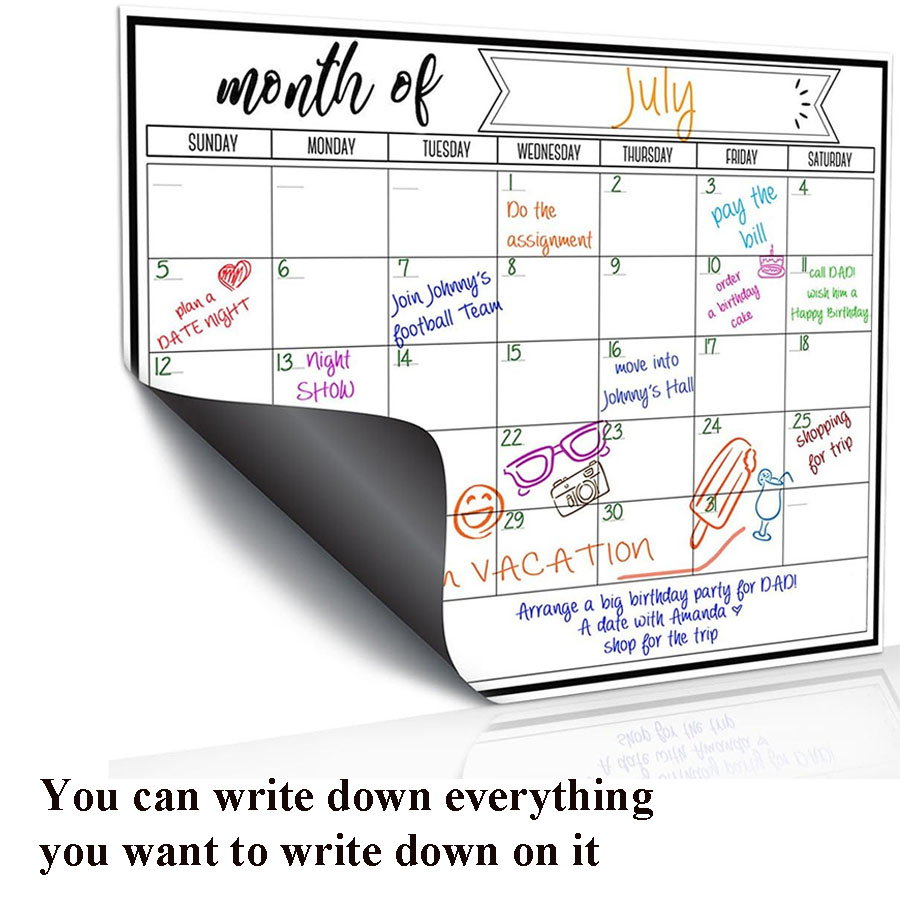 month of July
SUNDAY MONDAY TUESDAY WEDNESDAY THURSDAY FRIDAY SATURDAY
1 2 3 4
Do the
assignment
pay the
bill
5 6 7 8 9 10 11
plan a
DATE NIGHT
Join Johnny's
football Team
order
a birthday
cake
call DAD!
wish him a
Happy Birthday
12 13 14 15 16 17 18
Night
SHOW
move into
Johnny's Hall
22 23 24 25
shopping
for trip
29 30 31
VACATION
Arrange a big birthday party for DAD!
A date with Amanda
shop for the trip
You can write down everything
you want to write down on it